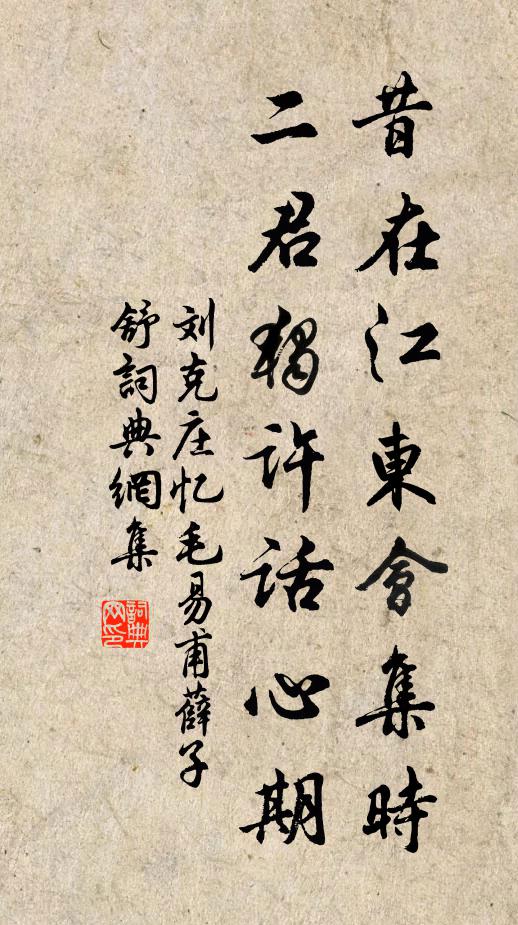 昔在江東會集時
二君獨許話心期
刘克庄忆毛易甫薛子
舒詞典網集
詞典
网印